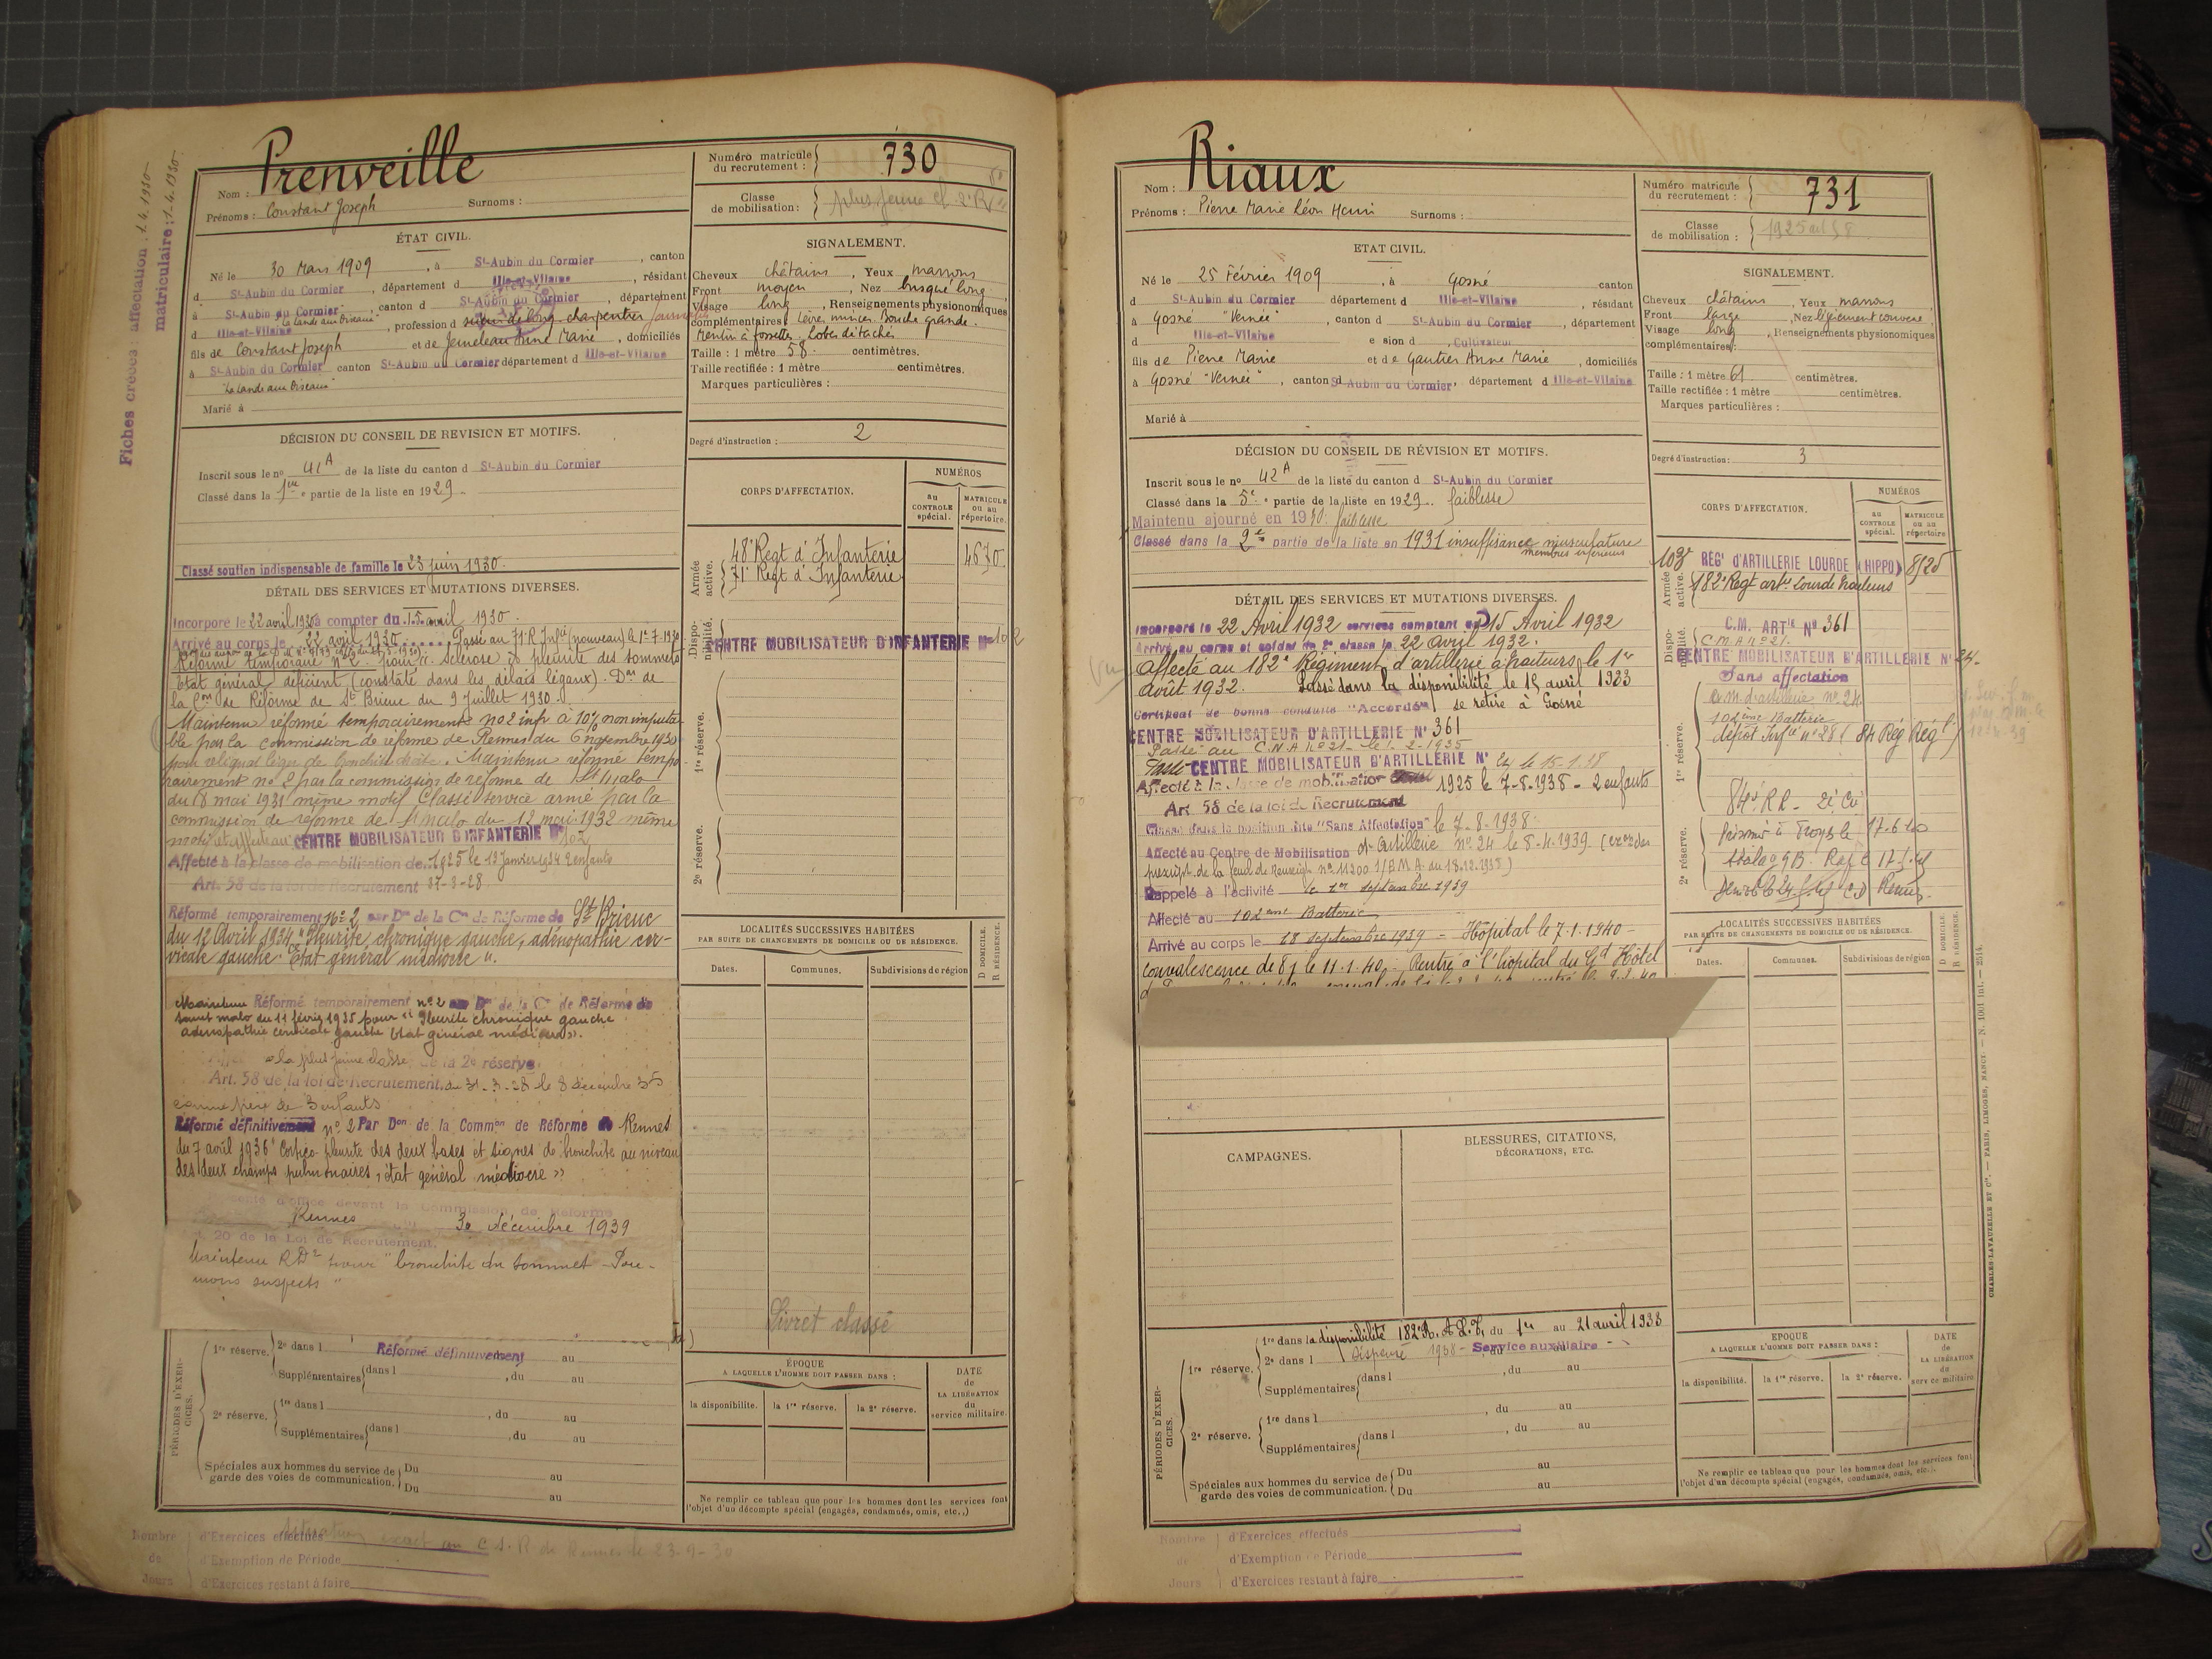 Fiches créées : affectation : 1.4.1930
matriculaire : 1-4-1930
Nom : Prenveille
Prénoms : Constant Joseph Surnoms :
Numéro matricule du recrutement : 730
Classe de mobilisation : plus jeune cl. 2e R
ÉTAT CIVIL.
Né le 30 Mars 1909, à St-Aubin du Cormier, canton
d St-Aubin du Cormier, département d Ille-et-Vilaine, résidant
à St-Aubin du Cormier "La Lande aux Oiseaux", canton d St-Aubin du Cormier, département
d Ille-et-Vilaine, profession d scieur de long charpentier
fils de Constant Joseph et de Jeuneleau Anne Marie, domiciliés
à St-Aubin du Cormier canton St-Aubin du Cormier département d Ille-et-Vilaine
"La Lande aux Oiseaux"
Marié à
SIGNALEMENT.
Cheveux châtains, Yeux marrons
Front moyen, Nez busqué long
Visage long, Renseignements physionomiques
complémentaires : Lèvres minces. Bouche grande.
Menton à fossette. Lobes détachés
Taille : 1 mètre 58 centimètres.
Taille rectifiée : 1 mètre centimètres.
Marques particulières :
DÉCISION DU CONSEIL DE REVISION ET MOTIFS.
Inscrit sous le no 41A de la liste du canton d St-Aubin du Cormier
Classé dans la 1ère partie de la liste en 1929.
Classé soutien indispensable de famille le 23 juin 1930.
Degré d'instruction : 2
CORPS D'AFFECTATION.
NUMÉROS
au CONTROLE spécial.
MATRICULE ou au répertoire.
Armée active.
48e Regt d'Infanterie 4670
71e Regt d'Infanterie
Disponibilité.
CENTRE MOBILISATEUR D'INFANTERIE No 102
1re réserve.
2e réserve.
DÉTAIL DES SERVICES ET MUTATIONS DIVERSES.
Incorporé le 22 avril 1930 à compter du 15 avril 1930.
Arrivé au corps le 22 avril 1930. Passé au 71e R. Infie (nouveau) le 1er-7-1930
Réformé temporaire no 2 pour "Sclérose & pleurite des sommets
Etat général déficient (constaté dans les délais légaux). Don de
la Com de Réforme de St Brieuc du 9 Juillet 1930.
Maintenu réformé temporairement no 2 inf. à 10% non imputa-
ble par la commission de réforme de Rennes du 6 novembre 1930
pour reliquat léger de bronchite droite. Maintenu réformé tempo
rairement no 2 par la commission de réforme de St Malo
du 8 mai 1931 même motif Classé service armé par la
commission de réforme de St malo du 12 mai 1932 même
motif et affecté au CENTRE MOBILISATEUR D'INFANTERIE No 102
Affecté à la classe de mobilisation de 1925 le 13 Janvier 1934 2 enfants
Art. 58 de la loi de Recrutement 31-3-28
Réformé temporairement No 2 par Don de la Con de Réforme de St Brieuc
du 12 Avril 1934 "Pleurite chronique gauche, adénopathie cer-
vicale gauche. Etat général médiocre".
Maintenu Réformé temporairement no 2 Don de la Con de Réforme de
saint malo du 11 février 1935 pour "Pleurite chronique gauche
adénopathie cervicale gauche Etat général médiocre".
à la plus jeune classe de la 2e réserve
Art. 58 de la loi de Recrutement du 31-3-28 le 8 décembre 35
comme père de 3 enfants
Réformé définitivement no 2 Par Don de la Common de Réforme de Rennes
du 7 avril 1936 "Cortico-pleurite des deux bases et signes de bronchite au niveau
des deux champs pulmonaires, état général médiocre"
d'office devant la Commission de Réforme
Rennes 30 décembre 1939
20 de la Loi de Recrutement.
Maintenu RD2 pour "bronchite du sommet - Pou-
mons suspects"
LOCALITÉS SUCCESSIVES HABITÉES
PAR SUITE DE CHANGEMENTS DE DOMICILE OU DE RÉSIDENCE.
Dates. Communes. Subdivisions de région
D DOMICILE. R RÉSIDENCE.
Livret classé
PÉRIODES D'EXERCICES.
1re réserve. 2e dans l Réformé définitivement au
Supplémentaires dans l , du au
2e réserve. 1re dans l , du au
Supplémentaires dans l , du au
Spéciales aux hommes du service de garde des voies de communication. Du au
Du au
ÉPOQUE
A LAQUELLE L'HOMME DOIT PASSER DANS :
la disponibilité. la 1re réserve. la 2e réserve.
DATE de LA LIBÉRATION du service militaire.
Ne remplir ce tableau que pour les hommes dont les services font
l'objet d'un décompte spécial (engagés, condamnés, omis, etc.,)
Nombre de Jours
d'Exercices effectués
d'Exemption de Période
d'Exercices restant à faire
exact au C.S.R. de Rennes le 23-9-30
Nom : Riaux
Prénoms : Pierre Marie Léon Henri Surnoms :
Numéro matricule du recrutement : 731
Classe de mobilisation : 1925 art 58
ETAT CIVIL.
Né le 25 Février 1909, à Gosné canton
d St-Aubin du Cormier département d Ille-et-Vilaine, résidant
à Gosné "Vernée", canton d St-Aubin du Cormier, département
d Ille-et-Vilaine e sion d Cultivateur
fils de Pierre Marie et de Gautier Anne Marie, domiciliés
à Gosné "Vernée", canton d St-Aubin du Cormier, département d Ille-et-Vilaine
Marié à
SIGNALEMENT.
Cheveux châtains, Yeux marrons
Front large, Nez légèrement convexe
Visage long, Renseignements physionomiques
complémentaires :
Taille : 1 mètre 61 centimètres.
Taille rectifiée : 1 mètre centimètres.
Marques particulières :
DÉCISION DU CONSEIL DE RÉVISION ET MOTIFS.
Inscrit sous le no 42A de la liste du canton d St-Aubin du Cormier
Classé dans la 5e partie de la liste en 1929. faiblesse
Maintenu ajourné en 1930. faiblesse
Classé dans la 2e partie de la liste en 1931 insuffisance musculature
membres inférieurs
Degré d'instruction : 3
CORPS D'AFFECTATION.
NUMÉROS
au CONTROLE spécial.
MATRICULE ou au répertoire
Armée active.
103e REGt D'ARTILLERIE LOURDE (HIPPO) 8/25
182e Regt artie Lourde tracteurs
Disponibilité.
C.M. ARTie No 361
C.M.A no 21.
CENTRE MOBILISATEUR D'ARTILLERIE No 24.
Sans affectation
1re réserve.
C.M. d'artillerie no 24
102ème Batterie
dépôt Infie no 28 84 Rég Rég
84e R.R. - 2e Cie
2e réserve.
Prisonnier à Troyes le 17.6.40
Stalag 9B.
DÉTAIL DES SERVICES ET MUTATIONS DIVERSES.
Incorporé le 22 Avril 1932 services comptant du 15 Avril 1932
Arrivé au corps et soldat de 2e classe le 22 avril 1932.
Affecté au 182e Régiment d'artillerie à tracteurs le 1er
août 1932. Passé dans la disponibilité le 15 avril 1933
Certificat de bonne conduite "Accordé" se retire à Gosné
CENTRE MOBILISATEUR D'ARTILLERIE No 361
Passé au C.M.A no 21 - le 1-2-1935
Passé CENTRE MOBILISATEUR D'ARTILLERIE No 24 le 15-1-38
Affecté à la classe de mobilisation 1925 le 7-8-1938 - 2 enfants
Art. 58 de la loi de Recrutement
Classé dans la position dite "Sans Affectation" le 7-8-1938.
Affecté au Centre de Mobilisation d'Artillerie no 24 le 8-4-1939 (exon des
prescript. de la feuil de Renseign no 11200 1/E.M.A. du 18.12.1935)
Rappelé à l'activité le 1er septembre 1939
Affecté au 102ème Batterie
Arrivé au corps le 18 septembre 1939 - Hôpital le 7.1.1940 -
convalescence de 8 j le 11.1.40. Rentré à l'hôpital du Gd Hôtel
LOCALITÉS SUCCESSIVES HABITÉES
PAR SUITE DE CHANGEMENTS DE DOMICILE OU DE RÉSIDENCE.
Dates. Communes. Subdivisions de région
D DOMICILE. R RÉSIDENCE.
CAMPAGNES.
BLESSURES, CITATIONS,
DÉCORATIONS, ETC.
PÉRIODES D'EXERCICES.
1re réserve. 1re dans la disponibilité 182e R.A.L.T. du 1er au 21 avril 1933
2e dans l Dispensé 1938 - Service auxiliaire -
Supplémentaires dans l , du au
2e réserve. 1re dans l , du au
Supplémentaires dans l , du au
Spéciales aux hommes du service de garde des voies de communication. Du au
Du au
EPOQUE
A LAQUELLE L'HOMME DOIT PASSER DANS :
la disponibilité. la 1re réserve. la 2e réserve.
DATE de LA LIBÉRATION du service militaire.
Ne remplir ce tableau que pour les hommes dont les services font
l'objet d'un décompte spécial (engagés, condamnés, omis, etc.,).
CHARLES-LAVAUZELLE ET Cie. — PARIS, LIMOGES, NANCY. — N. 1001 int. — 2514.
Nombre de Jours
d'Exercices effectués
d'Exemption de Période
d'Exercices restant à faire